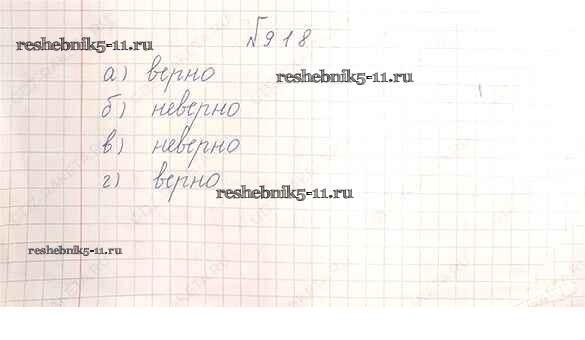 №918
reshebnik5-11.ru
а) верно
reshebnik5-11.ru
б) неверно
в) неверно
г) верно
reshebnik5-11.ru
reshebnik5-11.ru